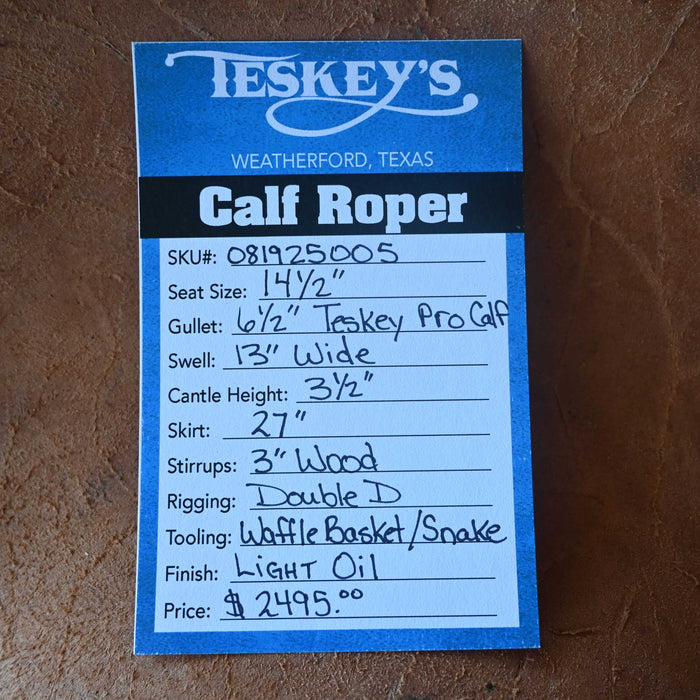 TESKEY'S
WEATHERFORD, TEXAS
Calf Roper
SKU#: 081925005
Seat Size: 14 1/2"
Gullet: 6 1/2" Teskey Pro Calf
Swell: 13" Wide
Cantle Height: 3 1/2"
Skirt: 27"
Stirrups: 3" Wood
Rigging: Double D
Tooling: Waffle Basket/Snake
Finish: LIGHT Oil
Price: $ 2495.00